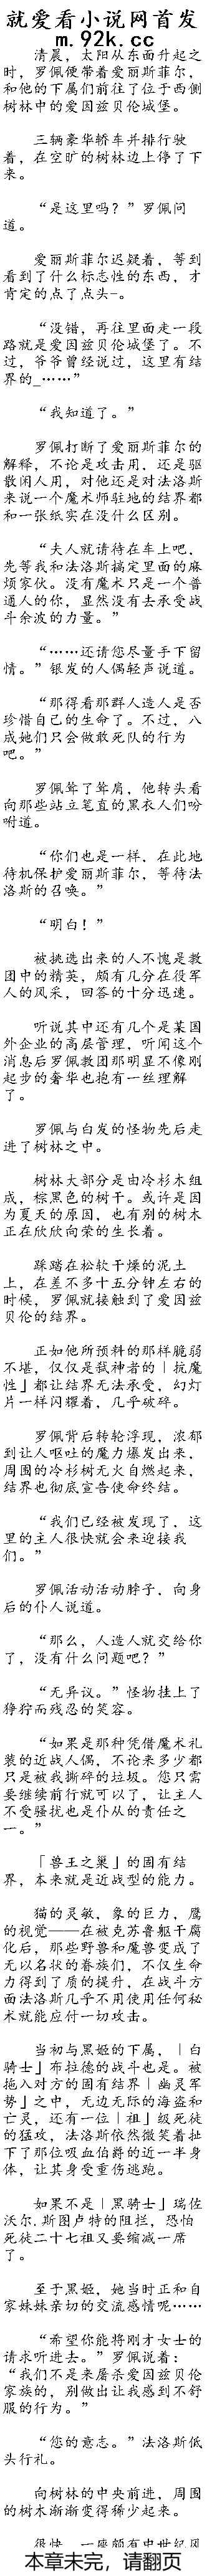 就爱看小说网首发
m.92k.cc
清晨，太阳从东面升起之
时，罗佩便带着爱丽斯菲尔，
和他的下属们前往了位于西侧
树林中的爱因兹贝伦城堡。
三辆豪华轿车并排行驶
着，在空旷的树林边上停了下
来。
“是这里吗？”罗佩问
道。
爱丽斯菲尔迟疑着，等到
看到了什么标志性的东西，才
肯定的点了点头-。
“没错，再往里面走一段
路就是爱因兹贝伦城堡了。不
过，爷爷曾经说过，这里有结
界的_……”
“我知道了。”
罗佩打断了爱丽斯菲尔的
解释，不论是攻击用，还是驱
散闲人用，对他还是对法洛斯
来说一个魔术师驻地的结界都
和一张纸实在没什么区别。
“夫人就请待在车上吧，
先等我和法洛斯搞定里面的麻
烦家伙。没有魔术只是一个普
通人的你，显然没有去承受战
斗余波的力量。”
“……还请您尽量手下留
情。”银发的人偶轻声说道。
“那得看那群人造人是否
珍惜自己的生命了。不过，八
成她们只会做敢死队的行为
吧。”
罗佩耸了耸肩，他转头看
向那些站立笔直的黑衣人们吩
咐道。
“你们也是一样，在此地
待机保护爱丽斯菲尔，等待法
洛斯的召唤。”
“明白！”
被挑选出来的人不愧是教
团中的精英，颇有几分在役军
人的风采，回答的十分迅速。
听说其中还有几个是某国
外企业的高层管理，听闻这个
消息后罗佩教团那明显不像刚
起步的奢华也抱有一丝理解
了。
罗佩与白发的怪物先后走
进了树林之中。
树林大部分是由冷杉木组
成，棕黑色的树干。或许是因
为夏天的原因，也有别的树木
正在欣欣向荣的生长着。
踩踏在松软干燥的泥土
上，在差不多十五分钟左右的
时候，罗佩就接触到了爱因兹
贝伦的结界。
正如他所预料的那样脆弱
不堪，仅仅是弑神者的「抗魔
性」都让结界无法承受，幻灯
片一样闪耀着，几乎破碎。
罗佩背后转轮浮现，浓郁
到让人呕吐的魔力爆发出来，
周围的冷杉树无火自燃起来，
结界也彻底宣告使命终结。
“我们已经被发现了，这
里的主人很快就会来迎接我
们。”
罗佩活动活动脖子，向身
后的仆人说道。
“那么，人造人就交给你
了，没有什么问题吧？”
“无异议。”怪物挂上了
狰狞而残忍的笑容。
“如果是那种凭借魔术礼
装的近战人偶，不论来多少都
只是被我撕碎的垃圾。您只需
要继续前行就可以了，让主人
不受骚扰也是仆从的责任之
一。”
「兽王之巢」的固有结
界，本来就是近战型的能力。
猫的灵敏，象的巨力，鹰
的视觉——在被克苏鲁躯干腐
化后，那些野兽和魔兽变成了
无以名状的眷族们，不仅生命
力得到了质的提升，在战斗方
面法洛斯几乎不用使用任何秘
术就能应付一切攻击。
当初与黑姬的下属，「白
骑士」布拉德的战斗也是。被
拖入对方的固有结界「幽灵军
势」之中，无边无际的海盗和
亡灵，还有一位「祖」级死徒
的猛攻，法洛斯依然微笑着扯
下了那位吸血伯爵的近一半身
体，让其身受重伤逃跑。
如果不是「黑骑士」瑞佐
沃尔.斯图卢特的阻拦，恐怕
死徒二十七祖又要缩减一席
了。
至于黑姬，她当时正和自
家妹妹亲切的交流感情呢……
“希望你能将刚才女士的
请求听进去。”罗佩说着：
“我们不是来屠杀爱因兹贝伦
家族的，别做出让我感到不舒
服的行为。”
“您的意志。”法洛斯低
头行礼。
向树林的中央前进，周围
的树木渐渐变得稀少起来。
很快，一座颇有中世纪风
本章未完，请翻页